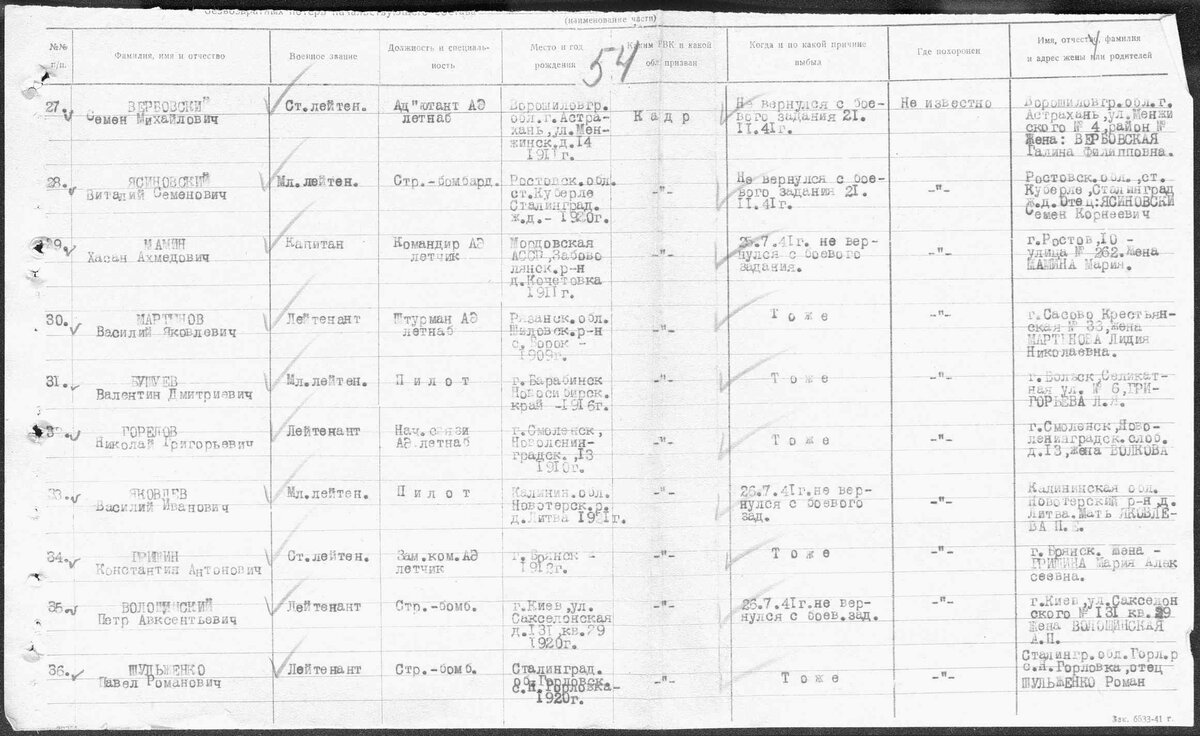 безвозвратных потерь начальствующего состава
(наименование части)
№№ п/п.
Фамилия, имя и отчество
Военное звание
Должность и специальность
Место и год рождения
54
Каким РВК и какой обл. призван
Когда и по какой причине выбыл
Где похоронен
Имя, отчество, фамилия и адрес жены или родителей
27. ВЕРБОВСКИЙ Ст.лейтен. Ад"ютант АЭ Ворошиловгр. Кадр Не вернулся с бое- Не известно Ворошиловгр.обл.г.
Семен Михайлович летнаб обл.г.Астра- вого задания 21. Астрахань,ул.Менжи
хань,ул.Мен- 11.41г. нского № 4,район №
жинск.д.14 Жена: ВЕРБОВСКАЯ
1911г. Галина Филипповна.
28. ЯСИНОВСКИЙ Мл.лейтен. Стр.-бомбард. Ростовск.обл. -"- Не вернулся с бое- -"- Ростовск.обл.,ст.
Виталий Семенович ст.Куберле вого задания 21. Куберле,Сталинград
Сталинград. 11.41г. ж.д.Отец:ЯСИНОВСКИ
ж.д.- 1920г. Семен Корнеевич
29. МАМИН Капитан Командир АЭ Мордовская -"- 25.7.41г. не вер- -"- г.Ростов,10 -
Хасан Ахмедович летчик АССР, нулся с боевого улица № 262.Жена
лянск.р-н задания. Мария.
д.Кочетовка
1911г.
30. МАРТЫНОВ Лейтенант Штурман АЭ Рязанск.обл. -"- Тоже -"- г.Сасово Крестьян-
Василий Яковлевич летнаб Шиловск.р-н ская № 33,жена
с.Борок - МАРТЫНОВА Лидия
1909г. Николаевна.
31. БУШУЕВ Мл.лейтен. Пилот г.Барабинск -"- Тоже -"- г.Вольск,Силикат-
Валентин Дмитриевич Новосибирск. ная ул. № 6,ГРИ-
край -1916г. ГОРЬЕВА
32. ГОРЕЛОВ Лейтенант Нач.связи г.Смоленск, -"- Тоже -"- г.Смоленск,Ново-
Николай Григорьевич АЭ летнаб Новоленин- ленинградск.слоб.
градск.,13 д.13,жена ВОЛКОВА
1910г.
33. ЯКОВЛЕВ Мл.лейтен. Пилот Калинин.обл. -"- 26.7.41г.не вер- -"- Калининская обл.
Василий Иванович Новотерск.р. нулся с боевого Новотерский р-н,д.
д.Литва зад. Литва.Мать ЯКОВЛЕ-
ВА П.Е.
34. ГРИШИН Ст.лейтен. Зам.ком.АЭ г.Брянск - -"- Тоже -"- г.Брянск. Жена -
Константин Антонович летчик 1912г. ГРИШИНА Мария Алек
сеевна.
35. ВОЛОЩИНСКИЙ Лейтенант Стр.-бомб. г.Киев,ул. -"- 26.7.41г.не вер- -"- г.Киев,ул.Сакселон
Петр Авксентьевич Сакселонская нулся с боев.зад. ского № 131 кв.29
д.131,кв.29 Жена ВОЛОЩИНСКАЯ
1920г. А.П.
36. ШУЛЬЖЕНКО Лейтенант Стр.-бомб. Сталинград. -"- Тоже -"- Сталингр.обл.Горл.р
Павел Романович об.Горловск. с.Н.Горловка,отец
с.Н.Горловка- ШУЛЬЖЕНКО Роман
1920г.
Зак. 6533-41 г.